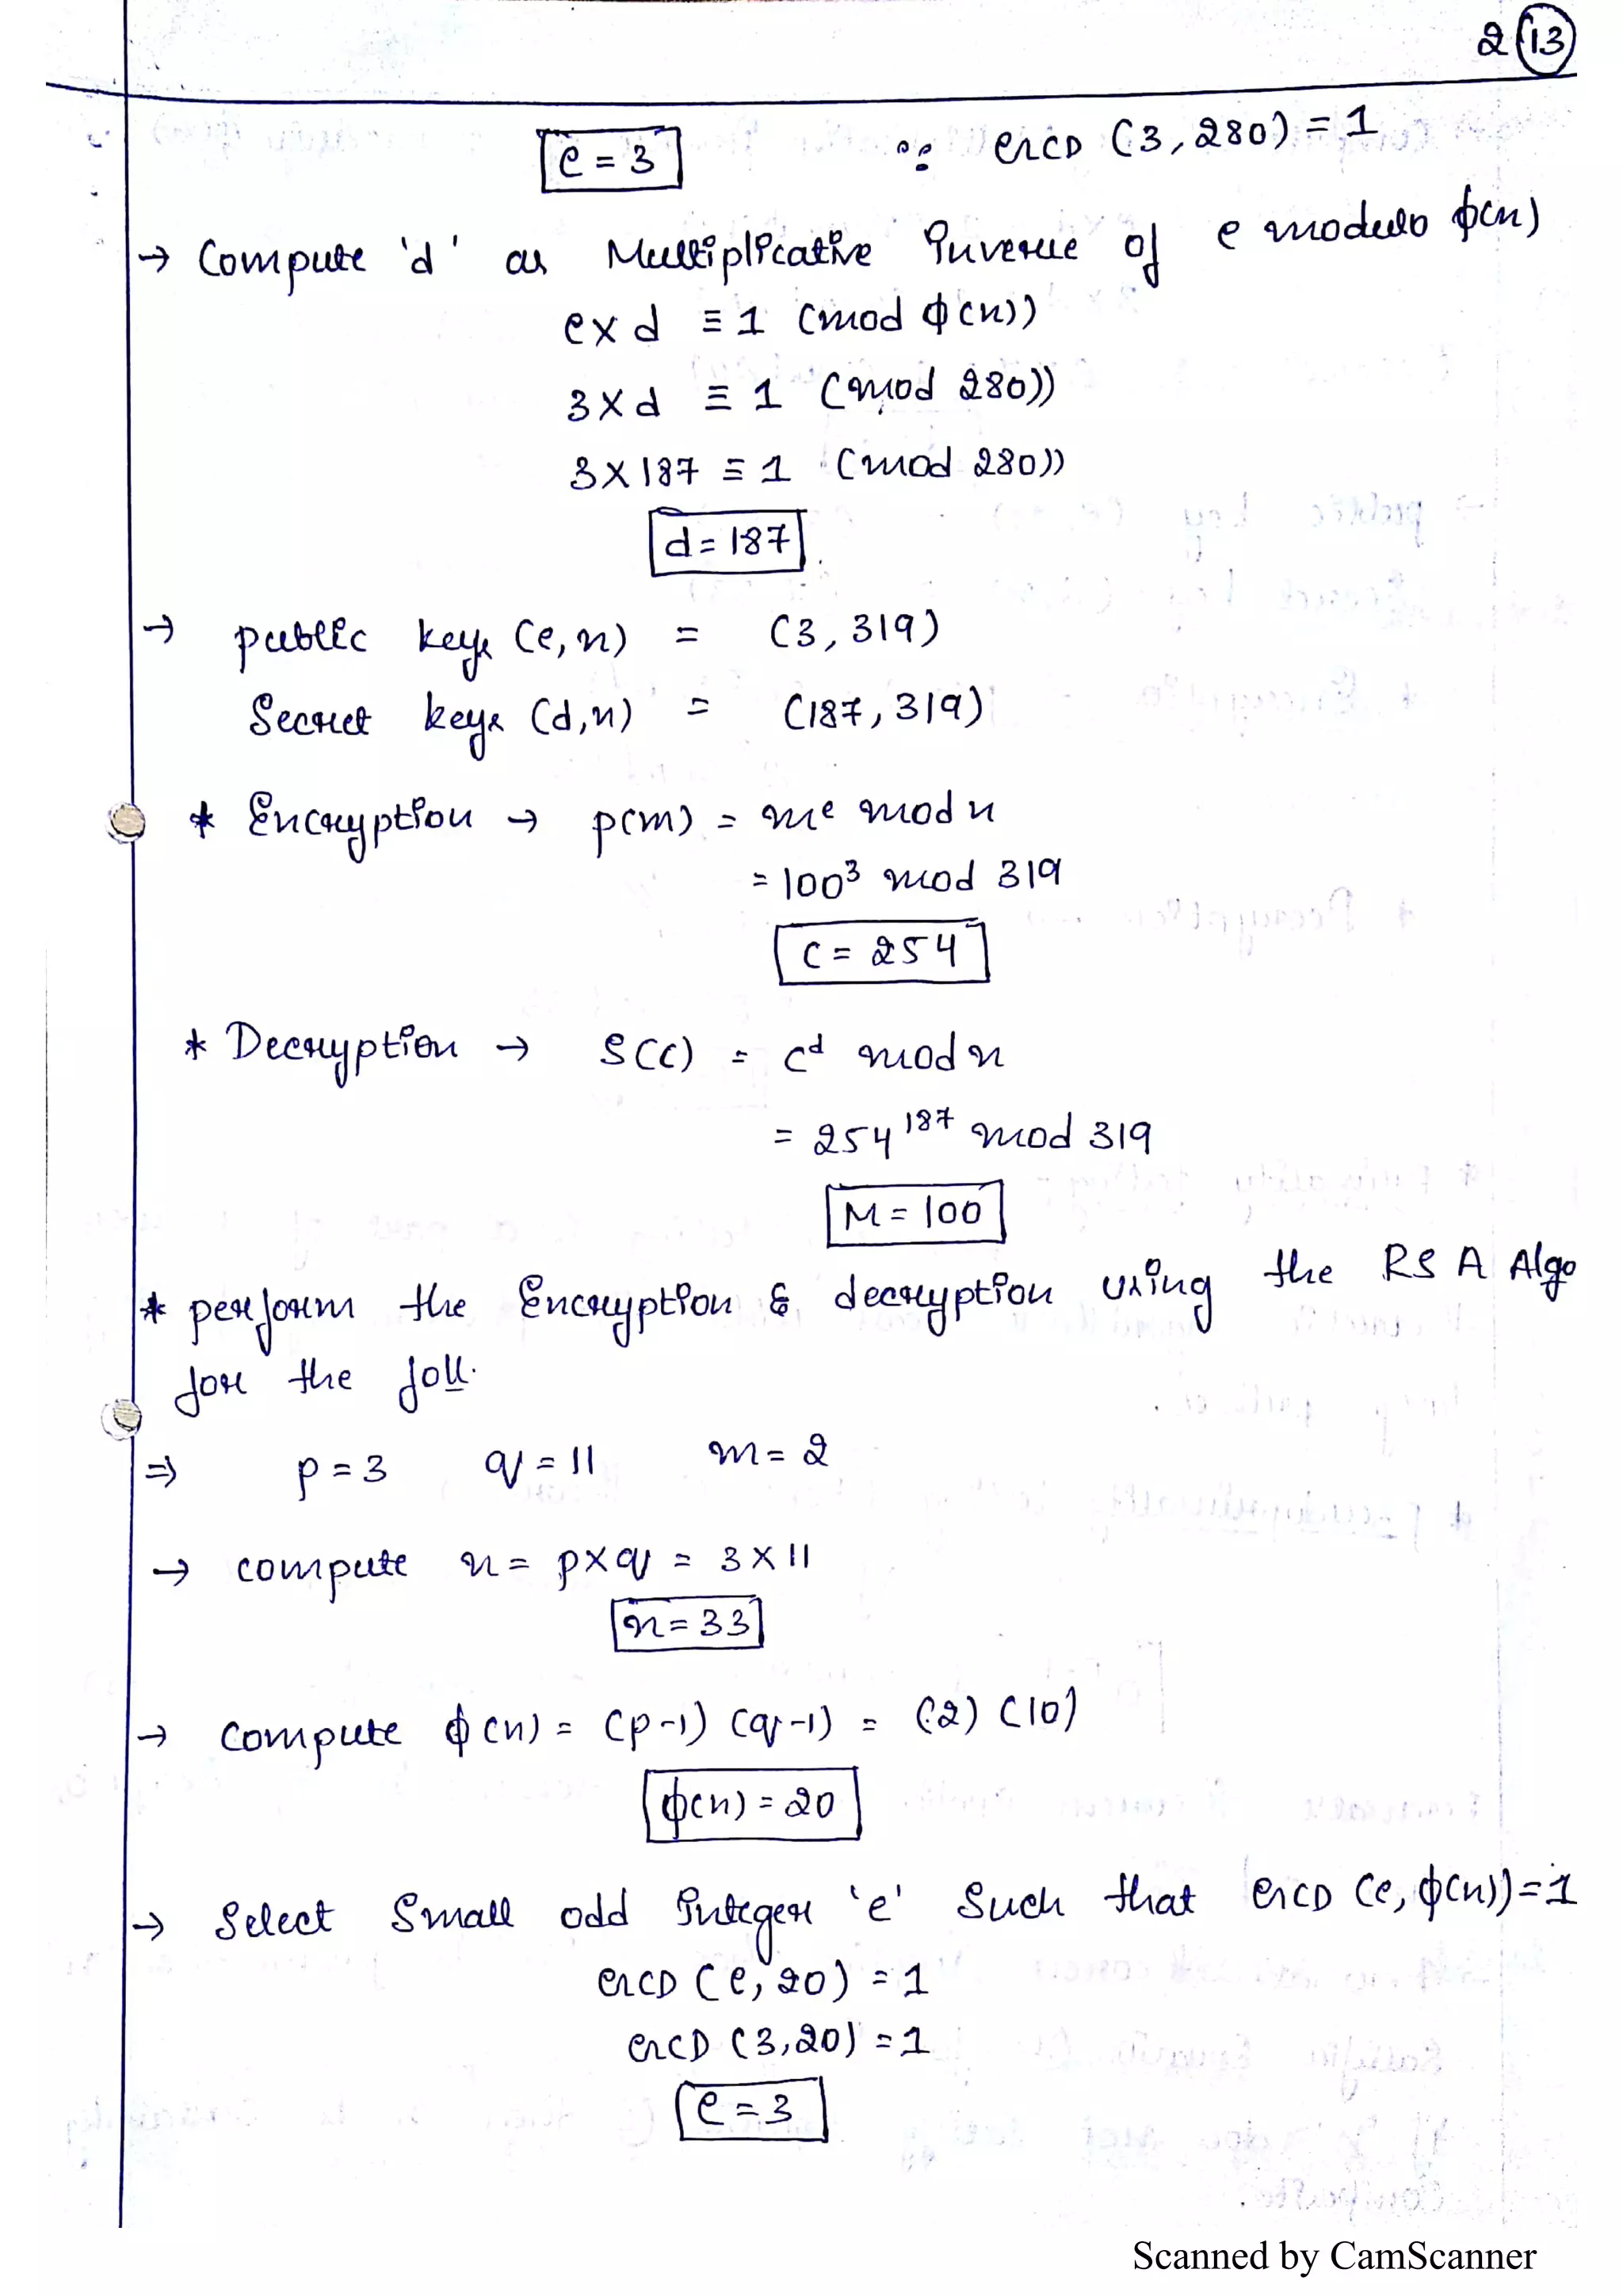 2 (13)
e = 3 ∵ GCD (3, 280) = 1
→ Compute 'd' as Multiplicative Inverse of e modulo ϕ(n)
e x d ≡ 1 (mod ϕ(n))
3 x d ≡ 1 (mod 280))
3 x 187 ≡ 1 (mod 280))
d = 187
→ public keys (e, n) = (3, 319)
Secret keys (d, n) = (187, 319)
* Encryption → P(m) = mᵉ mod n
= 100³ mod 319
C = 254
* Decryption → S(C) = Cᵈ mod n
= 254¹⁸⁷ mod 319
M = 100
* perform the Encryption & decryption using the RSA Algo
for the foll.
⇒ p = 3 q = 11 m = 2
→ compute n = p x q = 3 x 11
n = 33
→ compute ϕ(n) = (p-1) (q-1) = (2) (10)
ϕ(n) = 20
→ Select Small odd Integer 'e' Such that GCD (e, ϕ(n)) = 1
GCD (e, 20) = 1
GCD (3, 20) = 1
e = 3
Scanned by CamScanner